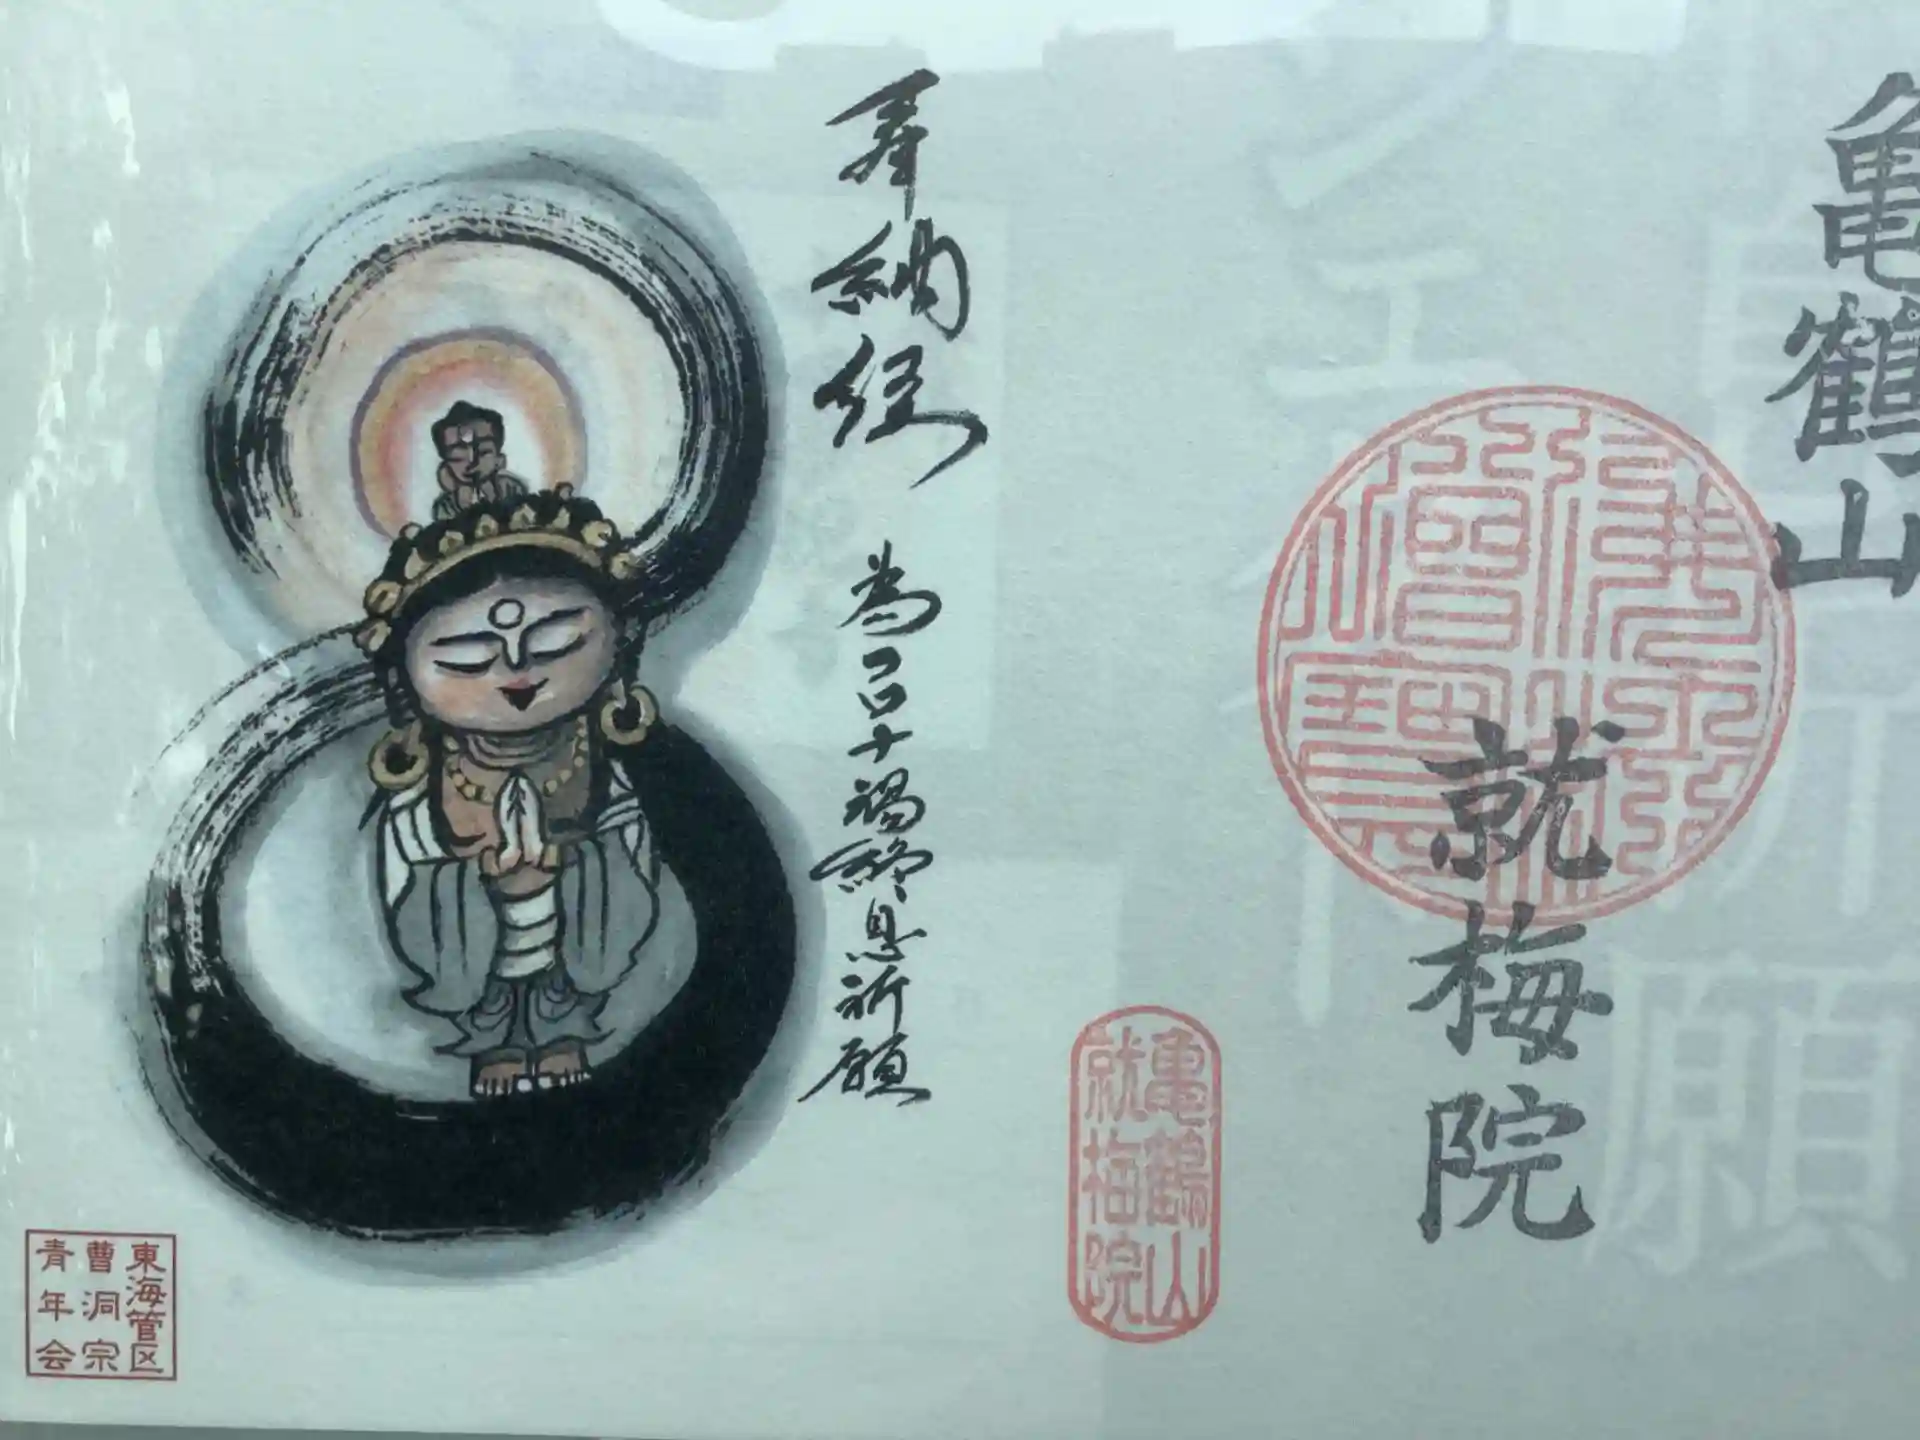 亀鶴山
就梅院
奉納経 為コロナ禍終息祈願
亀鶴山
就梅院
東海管区
曹洞宗
青年会